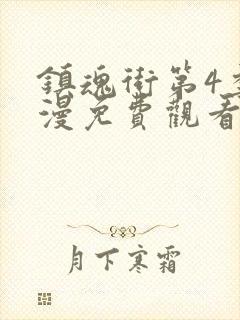 鎮魂街第4季
漫免費觀看
月下寒霜